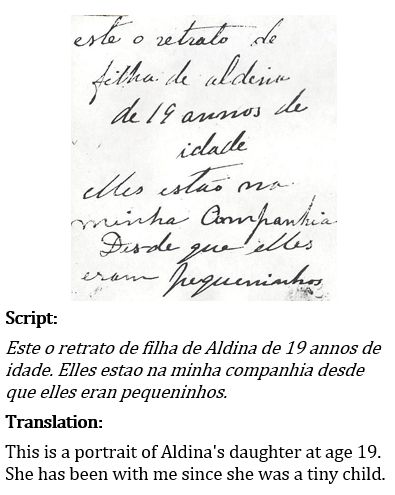 este o retrato de
filha de aldina
de 19 annos de
idade
elles estão na
minha Companhia
Desde que elles
eram pequeninhos
Script:
Este o retrato de filha de Aldina de 19 annos de
idade. Elles estao na minha companhia desde
que elles eran pequeninhos.
Translation:
This is a portrait of Aldina's daughter at age 19.
She has been with me since she was a tiny child.